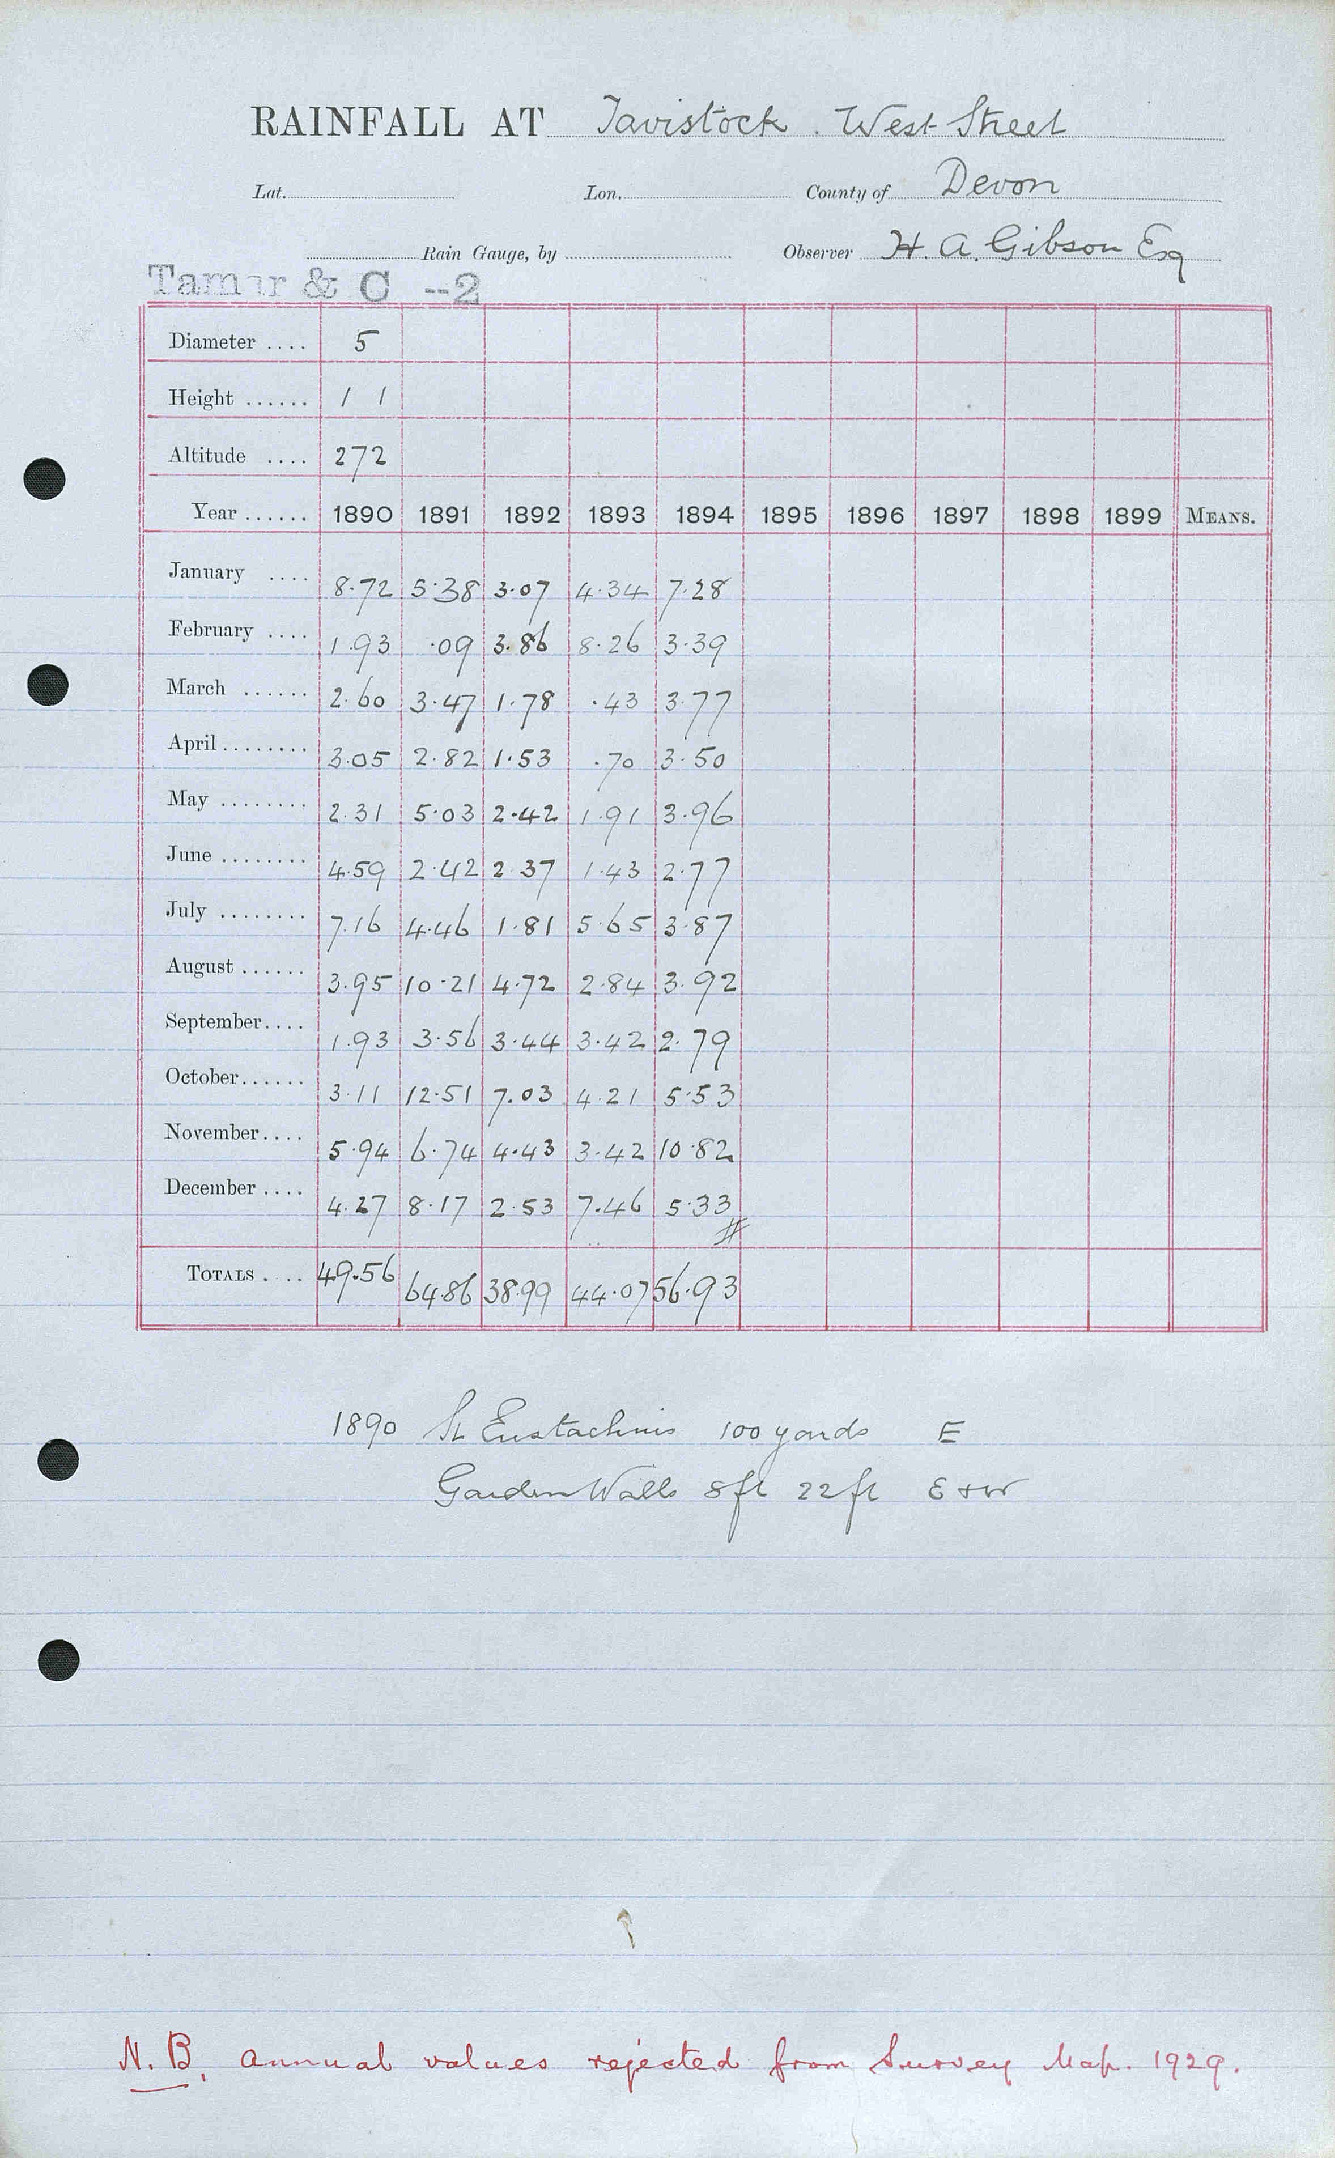 RAINFALL AT Tavistock. West Street
Lat. Lon. County of Devon
Rain Gauge, by Observer H. A. Gibson Esq
Tamar & C --2
Diameter .... 5
Height ...... 1 1
Altitude .... 272
Year ...... 1890 1891 1892 1893 1894 1895 1896 1897 1898 1899 MEANS.
January .... 8.72 5.38 3.07 4.34 7.28
February .... 1.93 .09 3.86 8.26 3.39
March ...... 2.60 3.47 1.78 .43 3.77
April ........ 3.05 2.82 1.53 .70 3.50
May ........ 2.31 5.03 2.42 1.91 3.96
June ........ 4.59 2.42 2.37 1.43 2.77
July ........ 7.16 4.46 1.81 5.65 3.87
August ...... 3.95 10.21 4.72 2.84 3.92
September.... 1.93 3.56 3.44 3.42 2.79
October...... 3.11 12.51 7.03 4.21 5.53
November.... 5.94 6.74 4.43 3.42 10.82
December .... 4.27 8.17 2.53 7.46 5.33
#
TOTALS .... 49.56 64.86 38.99 44.07 56.93
1890 St Eustachius 100 yards E
Garden Walls 8ft 22ft E & W
N.B. Annual values rejected from Survey Map. 1929.